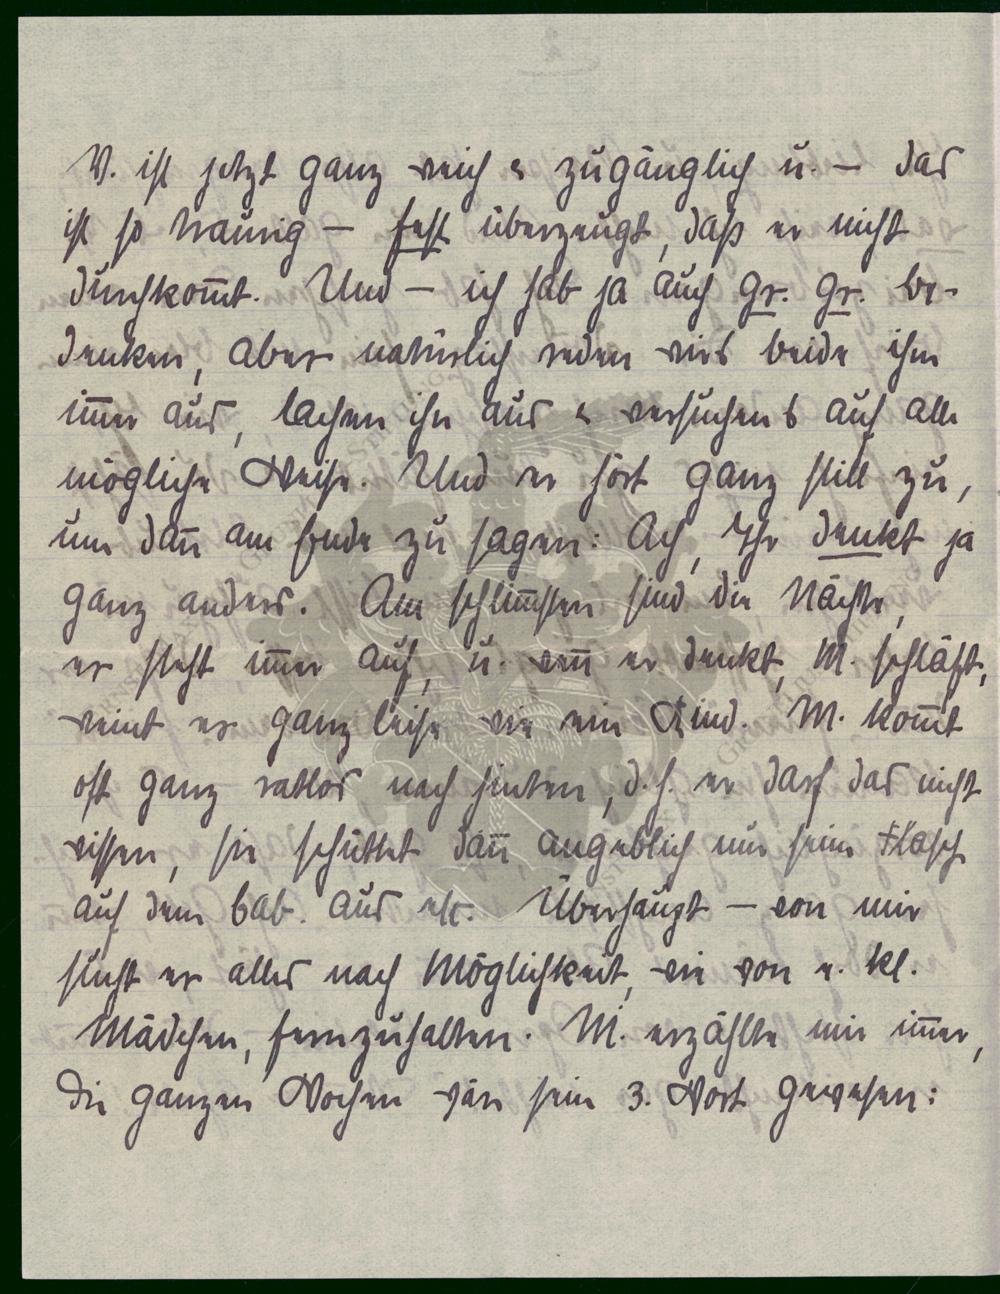 V. ist jetzt ganz weich & zugänglich u. – das
ist so traurig – fest überzeugt, daß er nicht
durchkom̅t. Und – ich hab ja auch gr. gr. Be-
denken, aber natürlich reden wirs beide ihm
im̅er aus, lachen ihn aus & versuchens auf alle
mögliche Weise. Und er hört ganz still zu,
um dan̅ am Ende zu sagen: Ach, Ihr denkt ja
ganz anders. Am schlim̅sten sind die Nächte,
er steht im̅er auf, u. wen̅ er denkt, M. schläft,
weint er ganz leise wie ein Kind. M. kom̅t
oft ganz ratlos nach hinten, d. h. er darf das nicht
wissen, sie schüttet dan̅ angeblich nur seine Flasch.
auf dem Kab. aus etc. Überhaupt – von mir
sucht er alles nach Möglichkeit, wie von e. kl.
Mädchen, fernzuhalten. M. erzählte mir im̅er,
die ganzen Wochen wär sein 3. Wort gewesen: